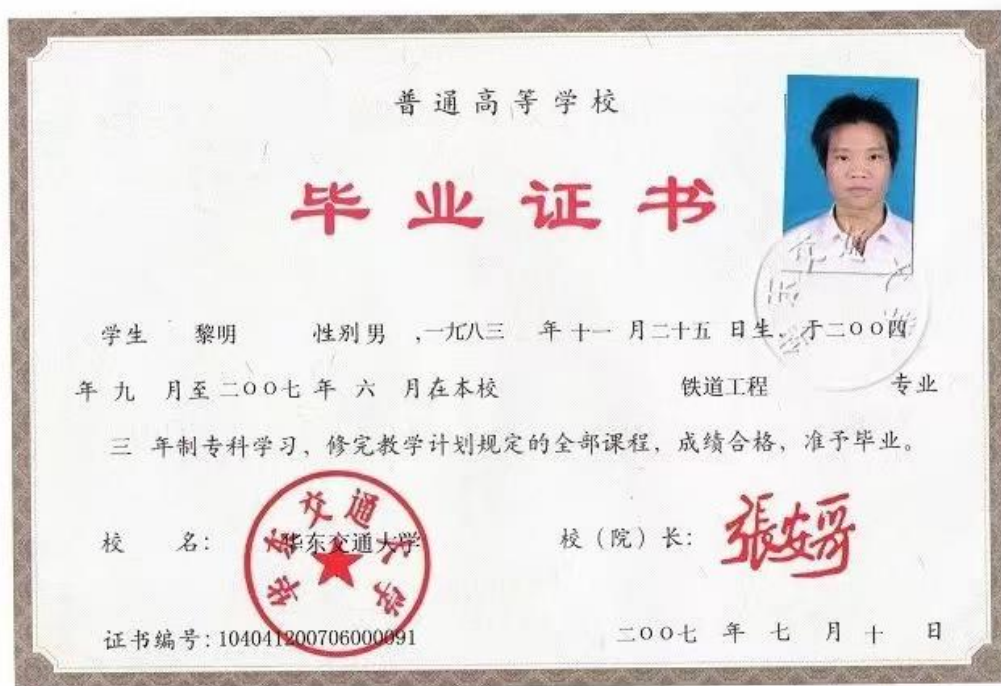 普通高等学校
毕业证书
学生 黎明 性别男 ,一九八三 年十一 月二十五 日生、于二〇〇四
年 九 月至二〇〇七年 六 月在本校 铁道工程 专业
三 年制专科学习、修完教学计划规定的全部课程,成绩合格,准予毕业。
校 名: 华东交通大学 校(院)长: 張安哥
华东交通大学
证书编号:104041200706000091 二〇〇七 年 七 月 十 日